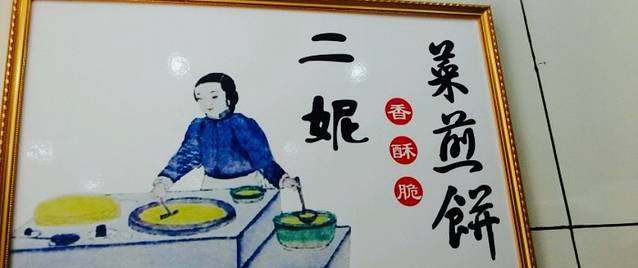 菜煎餅
香酥脆
二妮